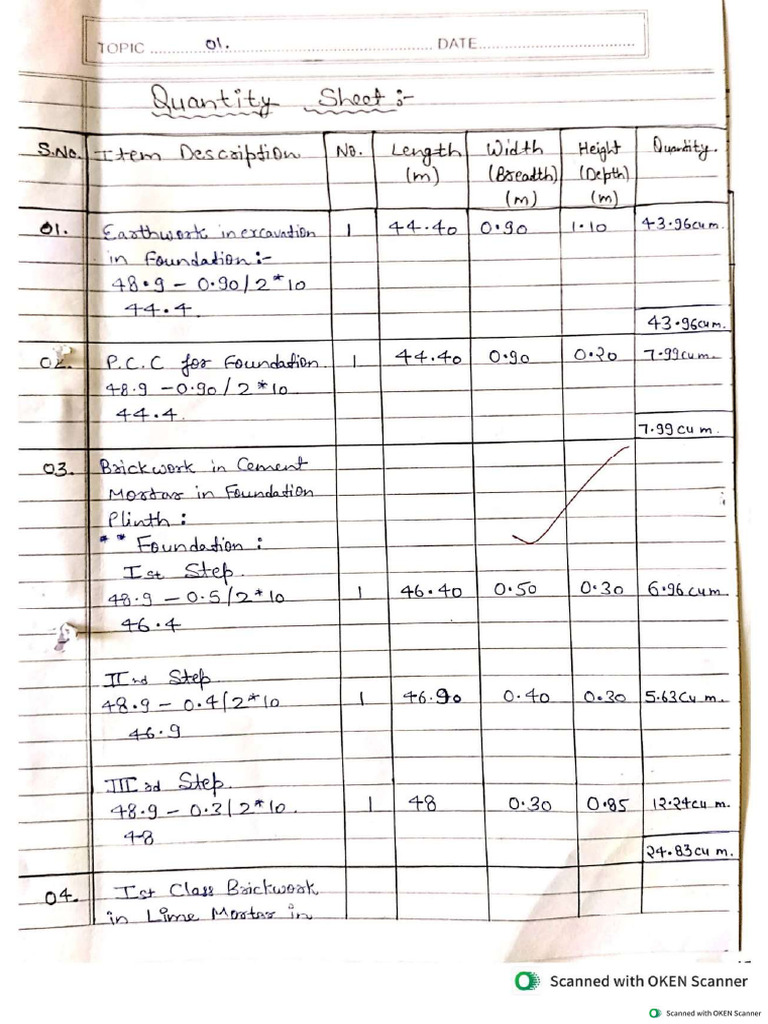 TOPIC 01. DATE
Quantity Sheet :-
S.No. Item Description No. Length (m) Width (Breadth) (m) Height (Depth) (m) Quantity.
01. Earthwork in excavation 1 44.40 0.90 1.10 43.96cum.
in Foundation:-
48.9 - 0.90/2*10
44.4.
43.96cum.
02. P.C.C for Foundation 1 44.40 0.90 0.20 7.99cum.
48.9 - 0.90/2*10
44.4.
7.99 cu m.
03. Brickwork in Cement
Mortar in Foundation
Plinth:
** Foundation:
Ist Step.
48.9 - 0.5/2*10 1 46.40 0.50 0.30 6.96 cum.
46.4
IInd Step
48.9 - 0.4/2*10 1 46.90 0.40 0.30 5.63Cu m.
46.9
III3d Step.
48.9 - 0.3/2*10. 1 48 0.30 0.85 12.24cu m.
48
24.83cu m.
04. Ist Class Brickwork
in Lime Mortar in
Scanned with OKEN Scanner
Scanned with OKEN Scanner